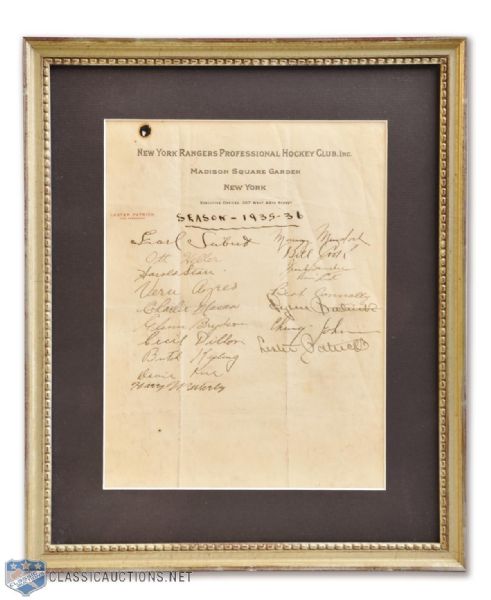 NEW YORK RANGERS PROFESSIONAL HOCKEY CLUB, INC.
MADISON SQUARE GARDEN
NEW YORK
EXECUTIVE OFFICES, 307 WEST 49TH STREET
LESTER PATRICK
SEASON - 1935-36
Earl Seibert
Ott Heller
Harold Starr
Vern Ayres
Charlie Mason
Glenn Brydson
Cecil Dillon
Butch Keeling
Davie Kerr
Murray Murdoch
Bill Cook
Bert Connolly
Lynn Patrick
Ching Johnson
Lester Patrick
CLASSICAUCTIONS.NET